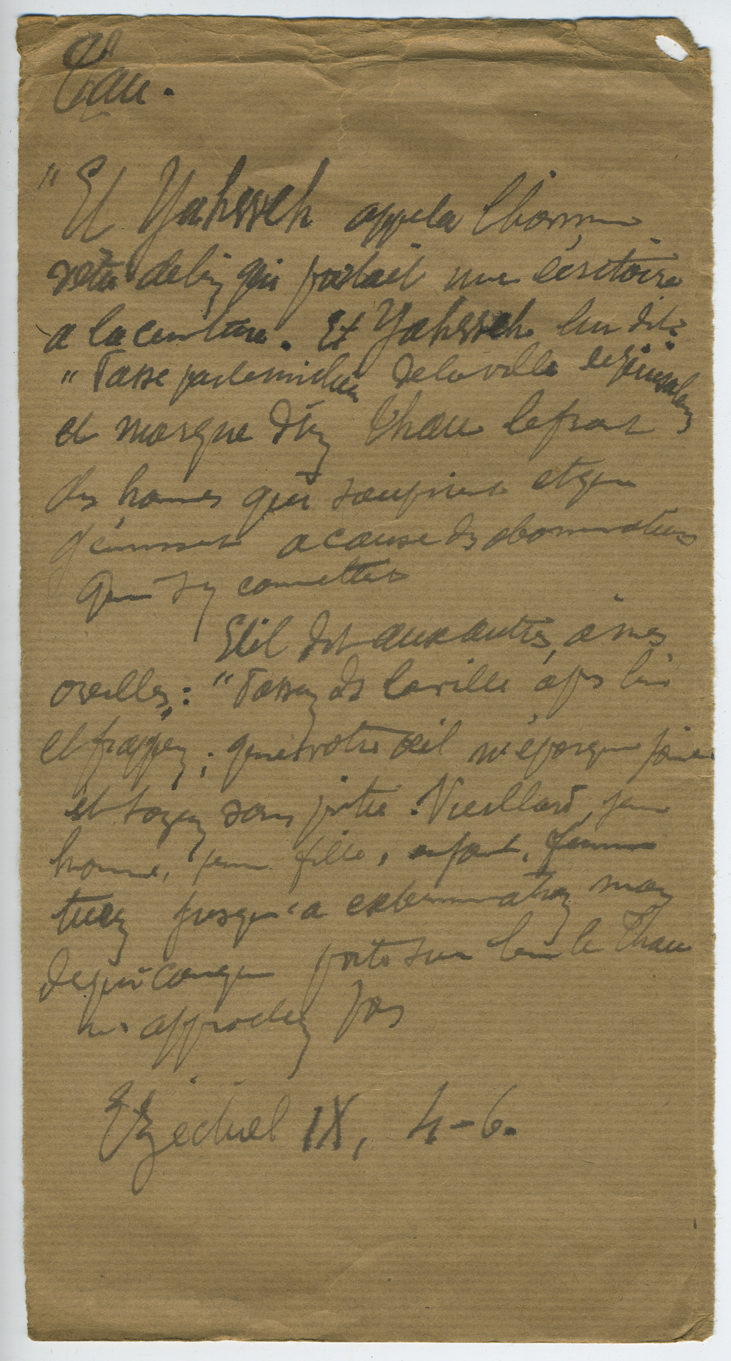 Thau.
"Et Yahweh appela l'homme
vêtu de lin qui portait une écritoire
a la ceinture. Et Yahweh lui dit:
"Passe par le milieu de la ville de Jérusalem
et marque d'un Thau le front
des hommes qui soupirent et qui
gémissent a cause des abominations
qui s'y comettent
Et il dit aux autres, à mes
oreilles: "Passez ds la ville après lui
et frappez"; que votre œil n'épargne point
et soyez sans pitié. Vieillard, jeune
homme, jeune fille, enfant, femme
tuez jusqu'a extermination mais
de quiconque porte sur lui le Thau
n'approchez pas
Ezéchiel IX, 4-6.